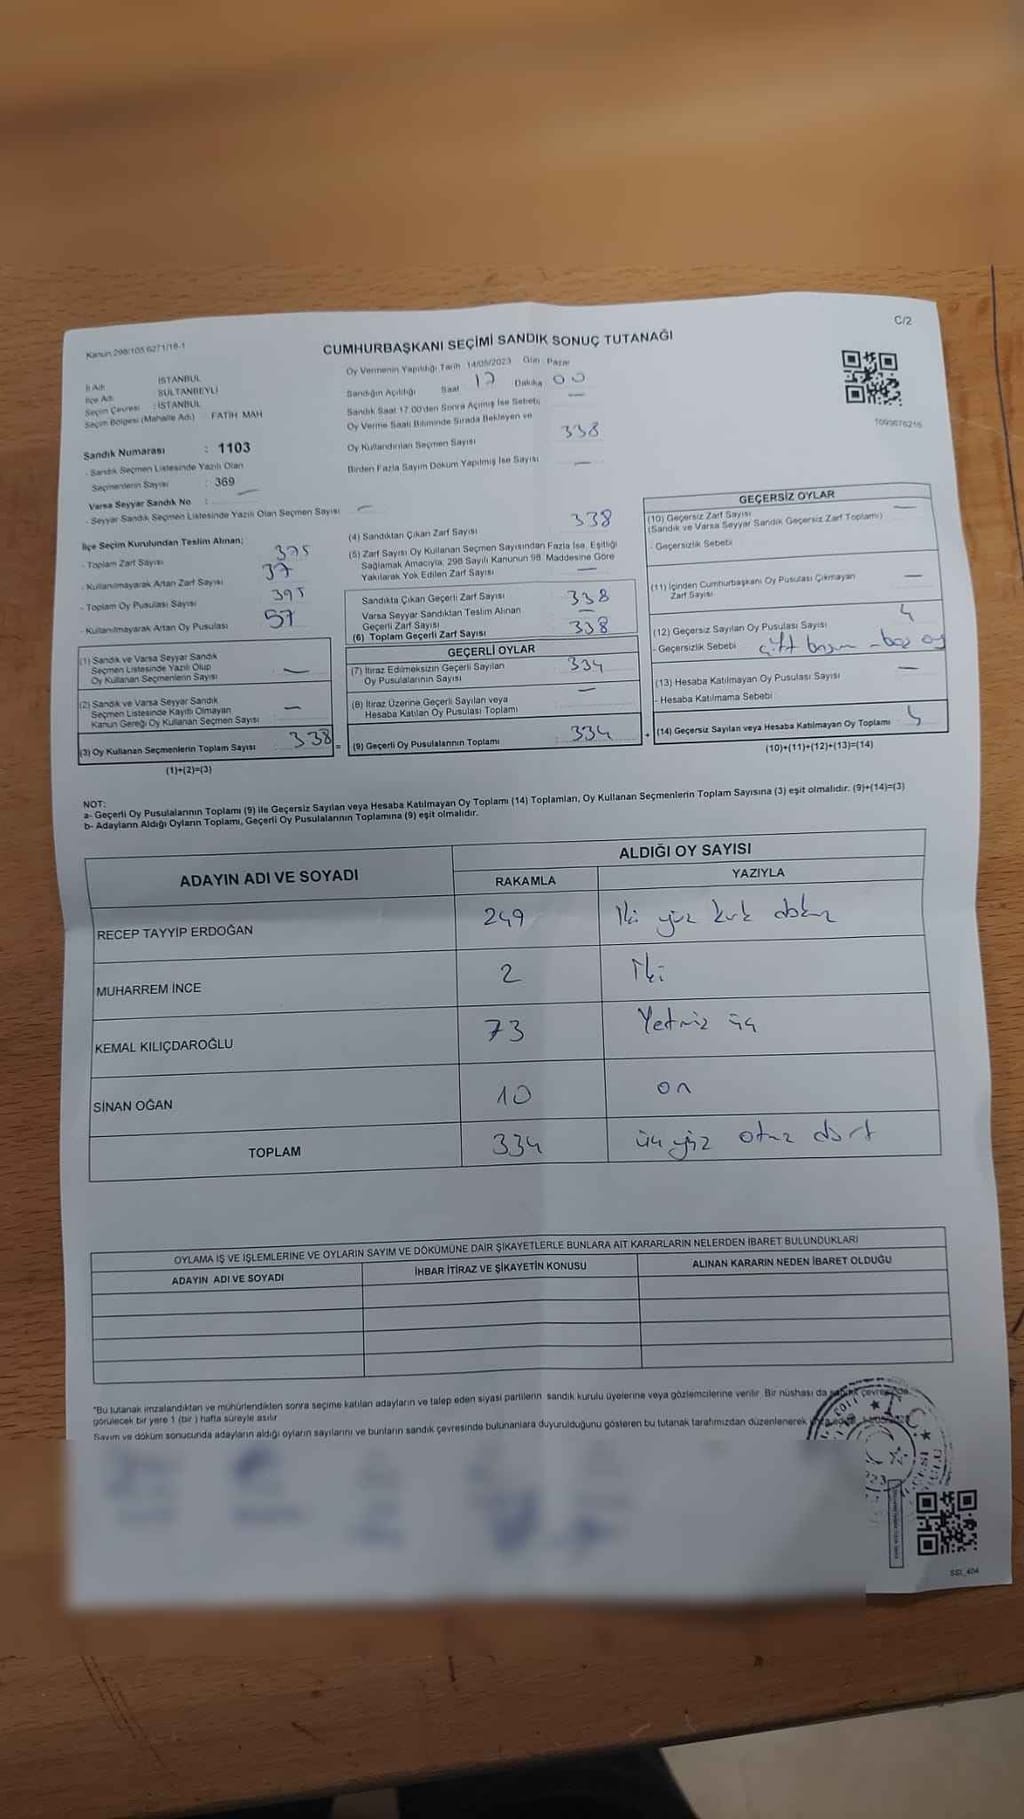 C/2
Kanun 298/105 6271/18-1
CUMHURBAŞKANI SEÇİMİ SANDIK SONUÇ TUTANAĞI
İl Adı : İSTANBUL
İlçe Adı : SULTANBEYLİ
Seçim Çevresi : İSTANBUL
Seçim Bölgesi (Mahalle Adı) : FATİH MAH
Sandık Numarası : 1103
- Sandık Seçmen Listesinde Yazılı Olan
Seçmenlerin Sayısı : 369
Varsa Seyyar Sandık No :
- Seyyar Sandık Seçmen Listesinde Yazılı Olan Seçmen Sayısı : —
Oy Vermenin Yapıldığı Tarih 14/05/2023 Gün Pazar
Sandığın Açıldığı Saat 17 Dakika 00
Sandık Saat 17.00'den Sonra Açılmış İse Sebebi —
Oy Verme Saati Bitiminde Sırada Bekleyen ve
Oy Kullandırılan Seçmen Sayısı 338
Birden Fazla Sayım Döküm Yapılmış İse Sayısı —
İlçe Seçim Kurulundan Teslim Alınan;
- Toplam Zarf Sayısı 375
- Kullanılmayarak Artan Zarf Sayısı 37
- Toplam Oy Pusulası Sayısı 395
- Kullanılmayarak Artan Oy Pusulası 57
(1) Sandık ve Varsa Seyyar Sandık
Seçmen Listesinde Yazılı Olup
Oy Kullanan Seçmenlerin Sayısı —
(2) Sandık ve Varsa Seyyar Sandık
Seçmen Listesinde Kayıtlı Olmayan
Kanun Gereği Oy Kullanan Seçmen Sayısı —
(3) Oy Kullanan Seçmenlerin Toplam Sayısı 338 =
(1)+(2)=(3)
(4) Sandıktan Çıkan Zarf Sayısı 338
(5) Zarf Sayısı Oy Kullanan Seçmen Sayısından Fazla İse, Eşitliği
Sağlamak Amacıyla, 298 Sayılı Kanunun 98. Maddesine Göre
Yakılarak Yok Edilen Zarf Sayısı —
Sandıkta Çıkan Geçerli Zarf Sayısı 338
Varsa Seyyar Sandıktan Teslim Alınan
Geçerli Zarf Sayısı —
(6) Toplam Geçerli Zarf Sayısı 338
GEÇERLİ OYLAR
(7) İtiraz Edilmeksizin Geçerli Sayılan
Oy Pusulalarının Sayısı 334
(8) İtiraz Üzerine Geçerli Sayılan veya
Hesaba Katılan Oy Pusulası Toplamı —
(9) Geçerli Oy Pusulalarının Toplamı 334 +
GEÇERSİZ OYLAR
(10) Geçersiz Zarf Sayısı —
(Sandık ve Varsa Seyyar Sandık Geçersiz Zarf Toplamı)
- Geçersizlik Sebebi
(11) İçinden Cumhurbaşkanı Oy Pusulası Çıkmayan
Zarf Sayısı —
(12) Geçersiz Sayılan Oy Pusulası Sayısı 4
- Geçersizlik Sebebi çift basım - boş oy
(13) Hesaba Katılmayan Oy Pusulası Sayısı —
- Hesaba Katılmama Sebebi
(14) Geçersiz Sayılan veya Hesaba Katılmayan Oy Toplamı 4
(10)+(11)+(12)+(13)=(14)
NOT:
a- Geçerli Oy Pusulalarının Toplamı (9) ile Geçersiz Sayılan veya Hesaba Katılmayan Oy Toplamı (14) Toplamları, Oy Kullanan Seçmenlerin Toplam Sayısına (3) eşit olmalıdır. (9)+(14)=(3)
b- Adayların Aldığı Oyların Toplamı, Geçerli Oy Pusulalarının Toplamına (9) eşit olmalıdır.
ADAYIN ADI VE SOYADI
ALDIĞI OY SAYISI
RAKAMLA YAZIYLA
RECEP TAYYİP ERDOĞAN 249 İki yüz kırk dokuz
MUHARREM İNCE 2 İki
KEMAL KILIÇDAROĞLU 73 Yetmiş üç
SİNAN OĞAN 10 on
TOPLAM 334 üç yüz otuz dört
OYLAMA İŞ VE İŞLEMLERİNE VE OYLARIN SAYIM VE DÖKÜMÜNE DAİR ŞİKAYETLERLE BUNLARA AİT KARARLARIN NELERDEN İBARET BULUNDUKLARI
ADAYIN ADI VE SOYADI İHBAR İTİRAZ VE ŞİKAYETİN KONUSU ALINAN KARARIN NEDEN İBARET OLDUĞU
*Bu tutanak imzalandıktan ve mühürlendikten sonra seçime katılan adayların ve talep eden siyasi partilerin sandık kurulu üyelerine veya gözlemcilerine verilir. Bir nüshası da sandık çevresinde
görülecek bir yere 1 (bir) hafta süreyle asılır
Sayım ve döküm sonucunda adayların aldığı oyların sayılarını ve bunların sandık çevresinde bulunanlara duyurulduğunu gösteren bu tutanak tarafımızdan düzenlenerek
T.C.